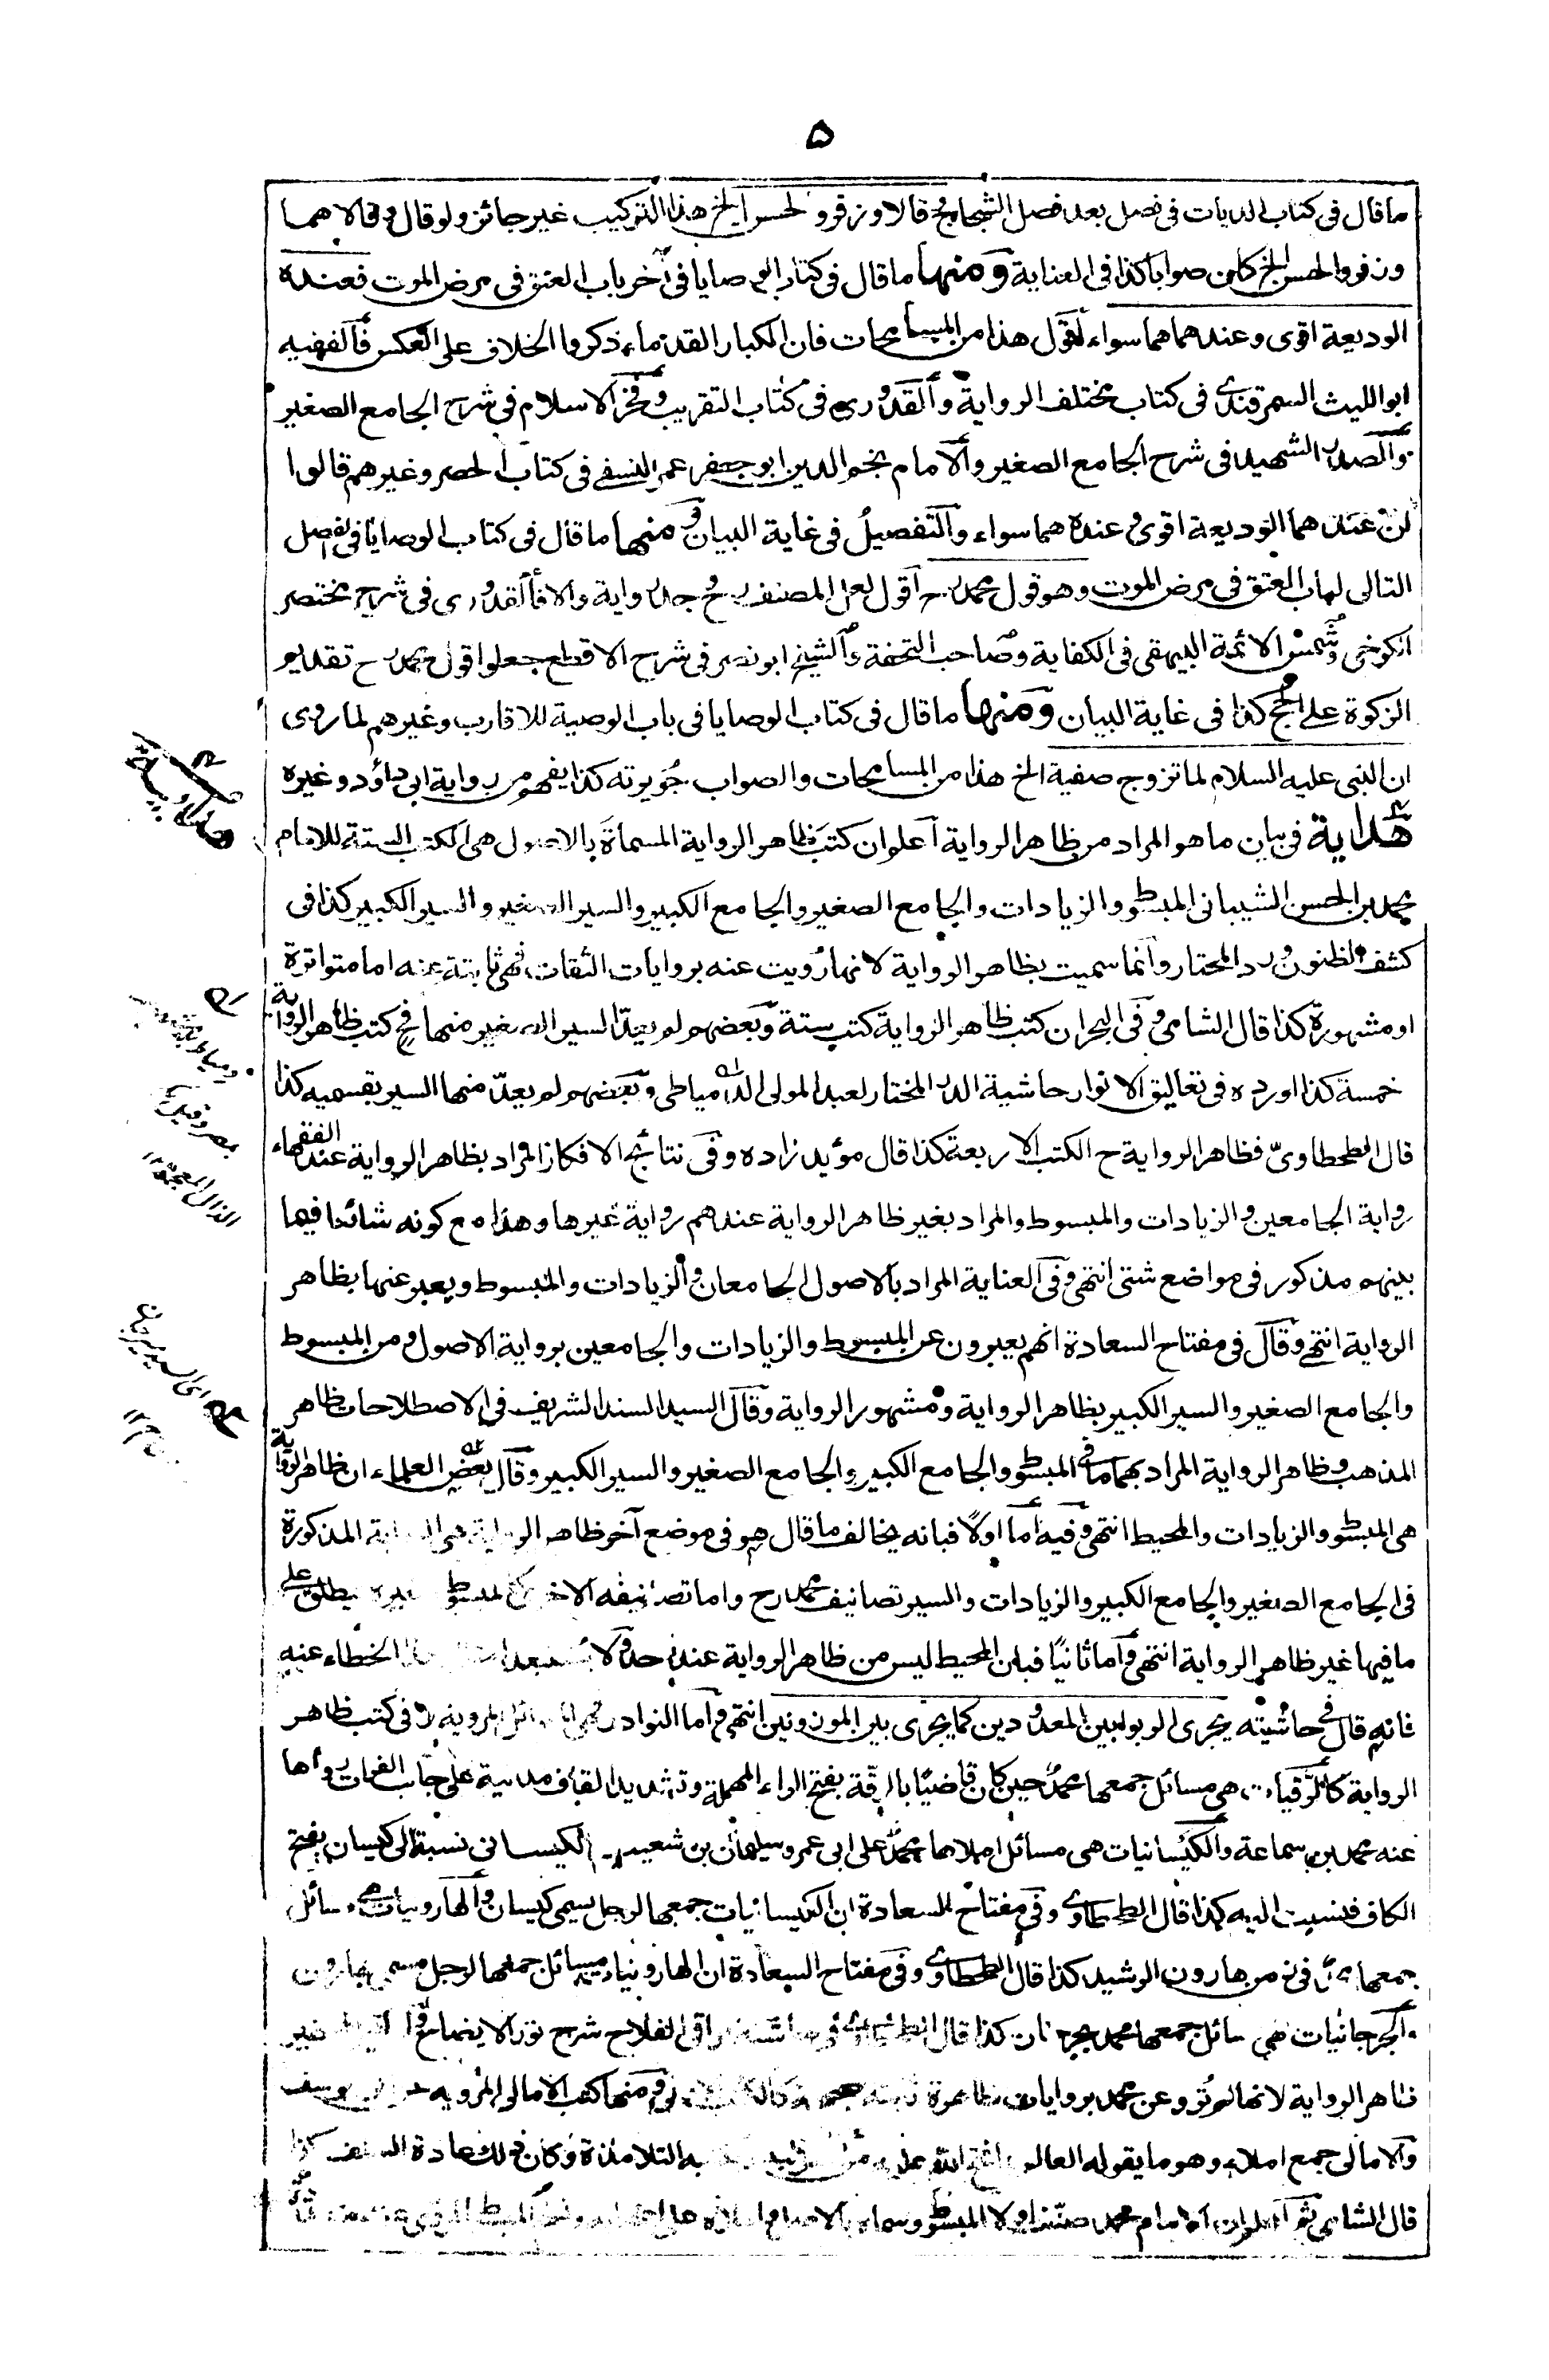 ۵
ما قال فى كتاب الديات فى فصل بعد فصل الشجاج وقالا وزفر والحسن الخ هذا التركيب غير جائز ولو قال وقالا هما
وزفر والحسن الخ كان صوابا كذا فى العناية ومنها ما قال فى كتاب الوصايا فى آخر باب العتق فى مرض الموت فعنده
الوديعة اقوى وعندهما هما سواء اقول هذا من المسامحات فان الكبار القدماء ذكروا الخلاف على العكس فالفقيه
ابو الليث السمرقندى فى كتاب مختلف الرواية والقدورى فى كتاب التقريب وفخر الاسلام فى شرح الجامع الصغير
والصدر الشهيد فى شرح الجامع الصغير والامام نجم الدين ابو جعفر عمر النسفى فى كتاب الحصر وغيرهم قالوا
ان عندهما الوديعة اقوى وعنده هما سواء والتفصيل فى غاية البيان ومنها ما قال فى كتاب الوصايا فى الفصل
التالى لباب العتق فى مرض الموت وهو قول محمد رح اقول لعل المصنف رح وجد رواية والا فالقدورى فى شرح مختصر
الكرخى وشمس الائمة البيهقى فى الكفاية وصاحب التحفة والشيخ ابو نصر فى شرح الاقطع جعلوا قول محمد رح تقديم
الزكوة على الحج كذا فى غاية البيان ومنها ما قال فى كتاب الوصايا فى باب الوصية للاقارب وغيرهم لما روى
ان النبى عليه السلام لما تزوج صفية الخ هذا من المسامحات والصواب جويرته كذا يفهم من رواية ابى داؤد وغيره
هداية فى بيان ما هو المراد من ظاهر الرواية اعلم ان كتب ظاهر الرواية المسماة بالاصول هى الكتب الستة للامام
محمد بن الحسن الشيبانى المبسوط والزيادات والجامع الصغير والجامع الكبير والسير الصغير والسير الكبير كذا فى
كشف الظنون ورد المحتار وانما سميت بظاهر الرواية لانها رويت عنه بروايات الثقات فهى ثابتة عنه اما متواترة
او مشهورة كذا قال الشامى وفى البحر ان كتب ظاهر الرواية كتب ستة وبعضهم لم يعد السير الصغير منها فح كتب ظاهر الرواية
خمسة كذا اورده فى تعاليق الانوار حاشية الدر المختار لعبد المولى الدمياطى وبعضهم لم يعد منها السير بقسميه كذا
قال الطحطاوى فظاهر الرواية ح الكتب الاربعة كذا قال مؤيد زاده وفى نتائج الافكار المراد بظاهر الرواية عند الفقهاء
رواية الجامعين والزيادات والمبسوط والمراد بغير ظاهر الرواية عندهم رواية غيرها وهذا مع كونه شائعا فيما
بينهم مذكور فى مواضع شتى انتهى وفى العناية المراد بالاصول الجامعان والزيادات والمبسوط ويعبر عنها بظاهر
الرواية انتهى وقال فى مفتاح السعادة انهم يعبرون عن المبسوط والزيادات والجامعين برواية الاصول ومن المبسوط
والجامع الصغير والسير الكبير بظاهر الرواية ومشهور الرواية وقال السيد السند الشريف فى الاصطلاحات ظاهر
المذهب وظاهر الرواية المراد بهما ما فى المبسوط والجامع الكبير والجامع الصغير والسير الكبير وقال بعض العلماء ان ظاهر الرواية
هى المبسوط والزيادات والمحيط انتهى وفيه اما اولا فبانه يخالف ما قال هو فى موضع آخر ظاهر الرواية هى الرواية المذكورة
فى الجامع الصغير والجامع الكبير والزيادات والسير تصانيف محمد رح واما تصانيفه الاخر يطلق على
ما فيها غير ظاهر الرواية انتهى واما ثانيا فبان المحيط ليس من ظاهر الرواية عند احد ولا الخطاء عنه
فانه قال فى حاشيته يجرى الربو بين المعدودين كما يجرى بين الموزونين انتهى واما النوادر فهى المسائل المروية لا فى كتب ظاهر
الرواية كالرقيات هى مسائل جمعها محمد حين كان قاضيا بالرقة بفتح الراء المهملة وتشديد القاف مدينة على جانب الفرات رواها
عنه محمد بن سماعة والكيسانيات هى مسائل املاها محمد على ابى عمرو سليمان بن شعيب الكيسانى نسبة الى كيسان بفتح
الكاف فنسبت اليه كذا قال الطحطاوى وفى مفتاح السعادة ان الكيسانيات جمعها لرجل يسمى كيسان والهارونيات هى مسائل
جمعها محمد فى زمن هارون الرشيد كذا قال الطحطاوى وفى مفتاح السعادة ان الهارونيات مسائل جمعها لرجل مسمى بهارون
والجرجانيات هى مسائل جمعها محمد بجرجان كذا قال الطحطاوى فى حاشية مراقى الفلاح شرح نور الايضاح
ظاهر الرواية لانها لم ترو عن محمد بروايات ظاهرة ومنها كتب الامالى المروية عن ابى يوسف
والامالى جمع املاء وهو ما يقوله العالم التلامذة وكان ذلك عادة السلف كذا
قال الشامى ثم اعلم ان الامام محمد صنف اولا المبسوط وسماه بالاصل